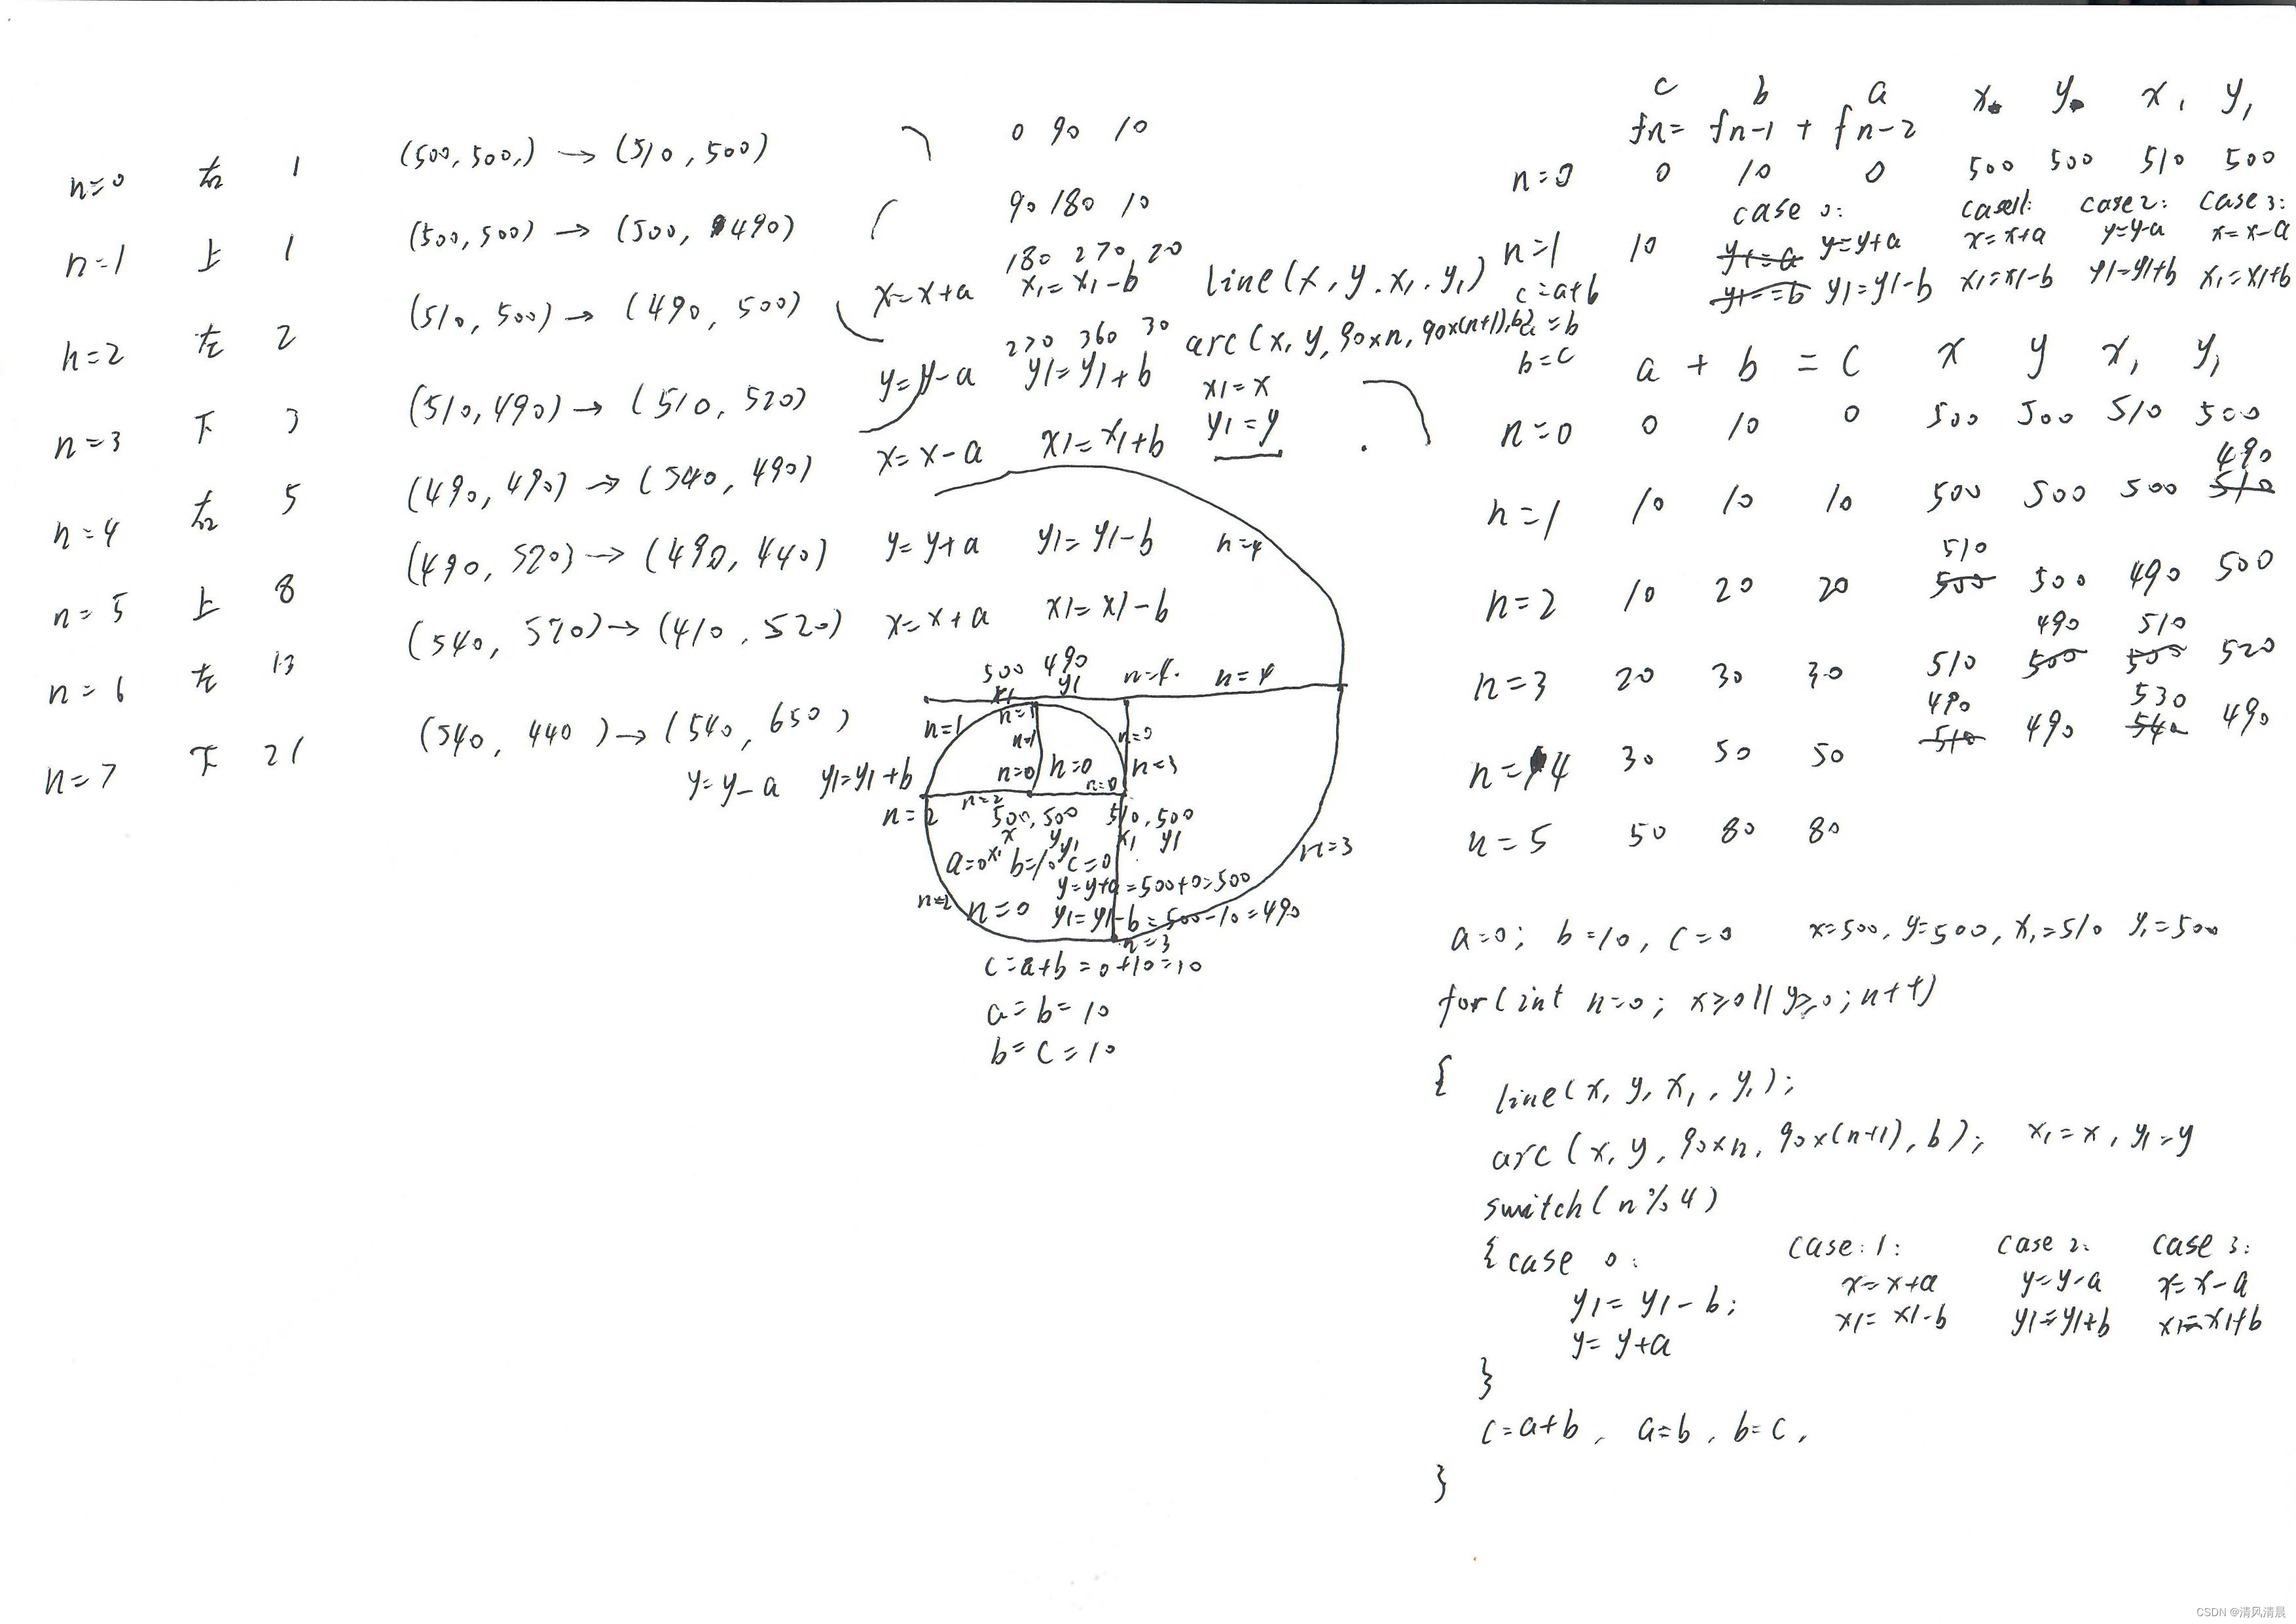 n=0 右 1 (500,500,) → (510,500) 0 90 10
n=1 上 1 (500,500) → (500,490) 90 180 10
n=2 左 2 (510,500) → (490,500) x=x+a 180 270 20
x1=x1-b line(x,y.x1,y1)
n=3 下 3 (510,490) → (510,520) y=y-a 270 360 30
y1=y1+b arc(x,y,90×n,90×(n+1),b)
x1=x
y1=y
n=4 右 5 (490,490) → (540,490) x=x-a x1=x1+b
n=5 上 8 (490,520) → (490,440) y=y+a y1=y1-b n=4
n=6 左 13 (540,520) → (410,520) x=x+a x1=x1-b
n=7 下 21 (540,440) → (540,650)
y=y-a y1=y1+b
500 490
x1 y1 n=4. n=4
n=1 n=1
n=1 n=3
n=0 n=0 n=3
n=2 n=0
n=2 500,500 510,500
x y x1 y1
x1 y1
a=0 b=10 c=0 n=3
y=y+a=500+0=500
n=2 n=0 y1=y1-b=500-10=490
n=3
c=a+b=0+10=10
a=b=10
b=c=10
c b a x y x1 y1
fn= fn-1 + fn-2
n=0 0 10 0 500 500 510 500
case 0: case1: case2: case3:
n=1 10 y1=a y=y+a x=x+a y=y-a x=x-a
c=a+b y1=-b y1=y1-b x1=x1-b y1=y1+b x1=x1+b
a=b
b=c
a + b = c x y x1 y1
n=0 0 10 0 500 500 510 500
490
n=1 10 10 10 500 500 500 510
510
n=2 10 20 20 500 500 490 500
490 510
n=3 20 30 30 510 500 500 520
490 530
n=4 30 50 50 510 490 540 490
n=5 50 80 80
a=0; b=10, c=0 x=500, y=500, x1=510 y1=500
for(int n=0; x≥0||y≥0;n++)
{
line(x,y,x1,y1);
arc(x,y,90×n,90×(n+1),b); x1=x,y1=y
switch(n%4)
{case 0: case:1: case 2: case 3:
y1=y1-b; x=x+a y=y-a x=x-a
y=y+a x1=x1-b y1=y1+b x1=x1+b
}
c=a+b, a=b, b=c,
}
CSDN @清风清晨